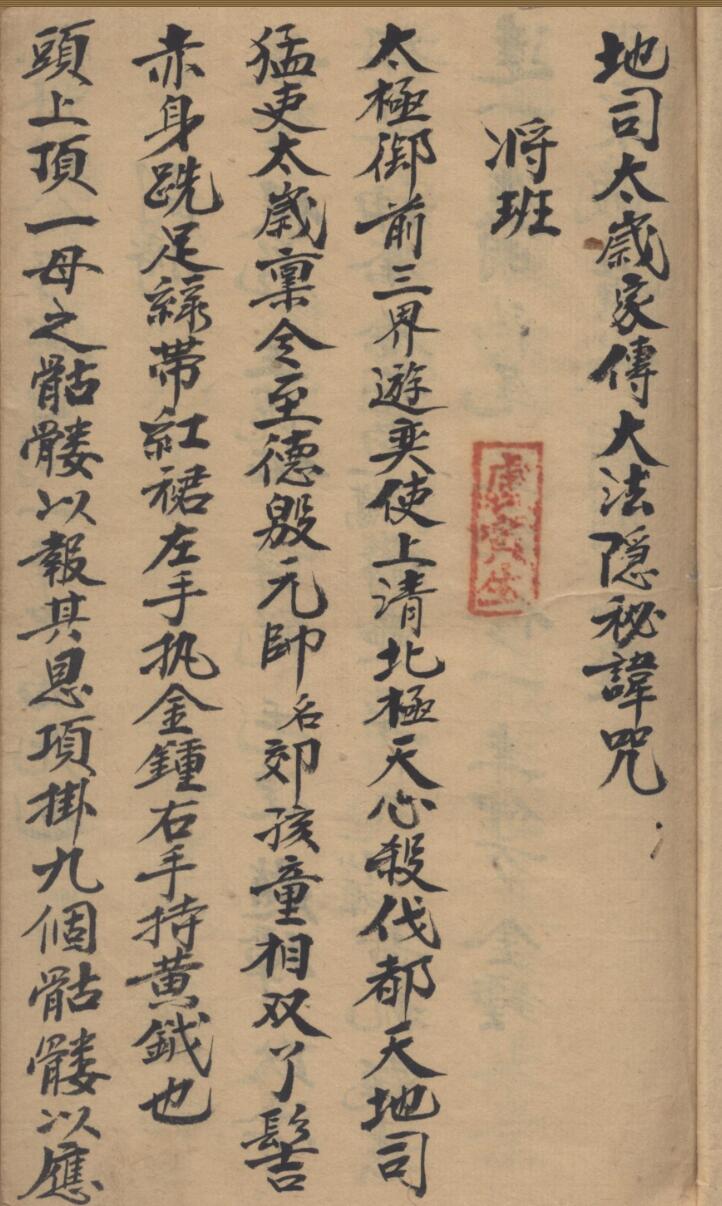 地司太歲家傳大法隱秘諱咒
将班
太極御前三界遊奕使上清北極天心殺伐都天地司
猛吏太歲稟令至德殷元帥名郊孩童相双丫髻
赤身跣足綠帶紅裙左手执金鍾右手持黄鉞也
頭上頂一母之骷髏以報其恩項掛九個骷髏以應